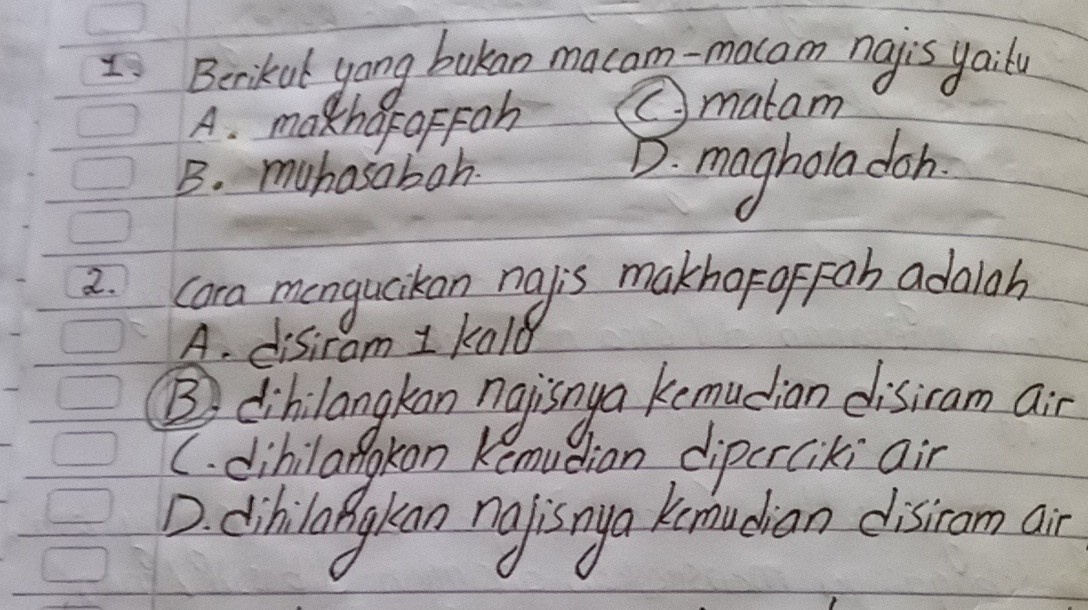 1. Berikut yang bukan macam-macam najis yaitu
A. makhafaffah C. matam
B. muhasabah. D. maghaladah.
2. Cara mengucikan najis makhafaffah adalah
A. disiram 1 kali
B. dihilangkan najisnya kemudian disiram air
C. dihilangkan kemudian diperciki air
D. dihilangkan najisnya kemudian disiram air